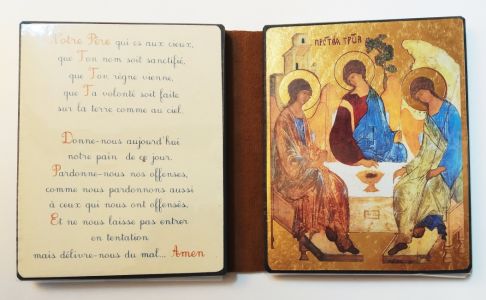 Notre Père qui es aux cieux,
que Ton nom soit sanctifié,
que Ton règne vienne,
que Ta volonté soit faite
sur la terre comme au ciel.
Donne-nous aujourd'hui
notre pain de ce jour.
Pardonne-nous nos offenses,
comme nous pardonnons aussi
à ceux qui nous ont offensés.
Et ne nous laisse pas entrer
en tentation
mais délivre-nous du mal... Amen